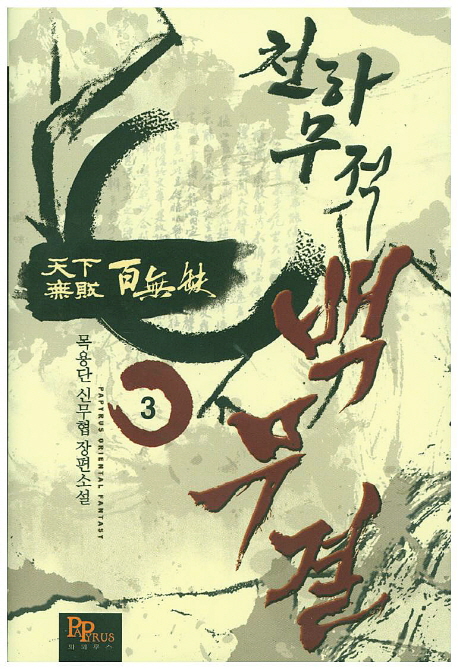 천하
무적
백무결
天下
無敗 百無缺
3
목용단 신무협 장편소설
PAPYRUS ORIENTAL FANTASY
PAPYRUS
파피루스